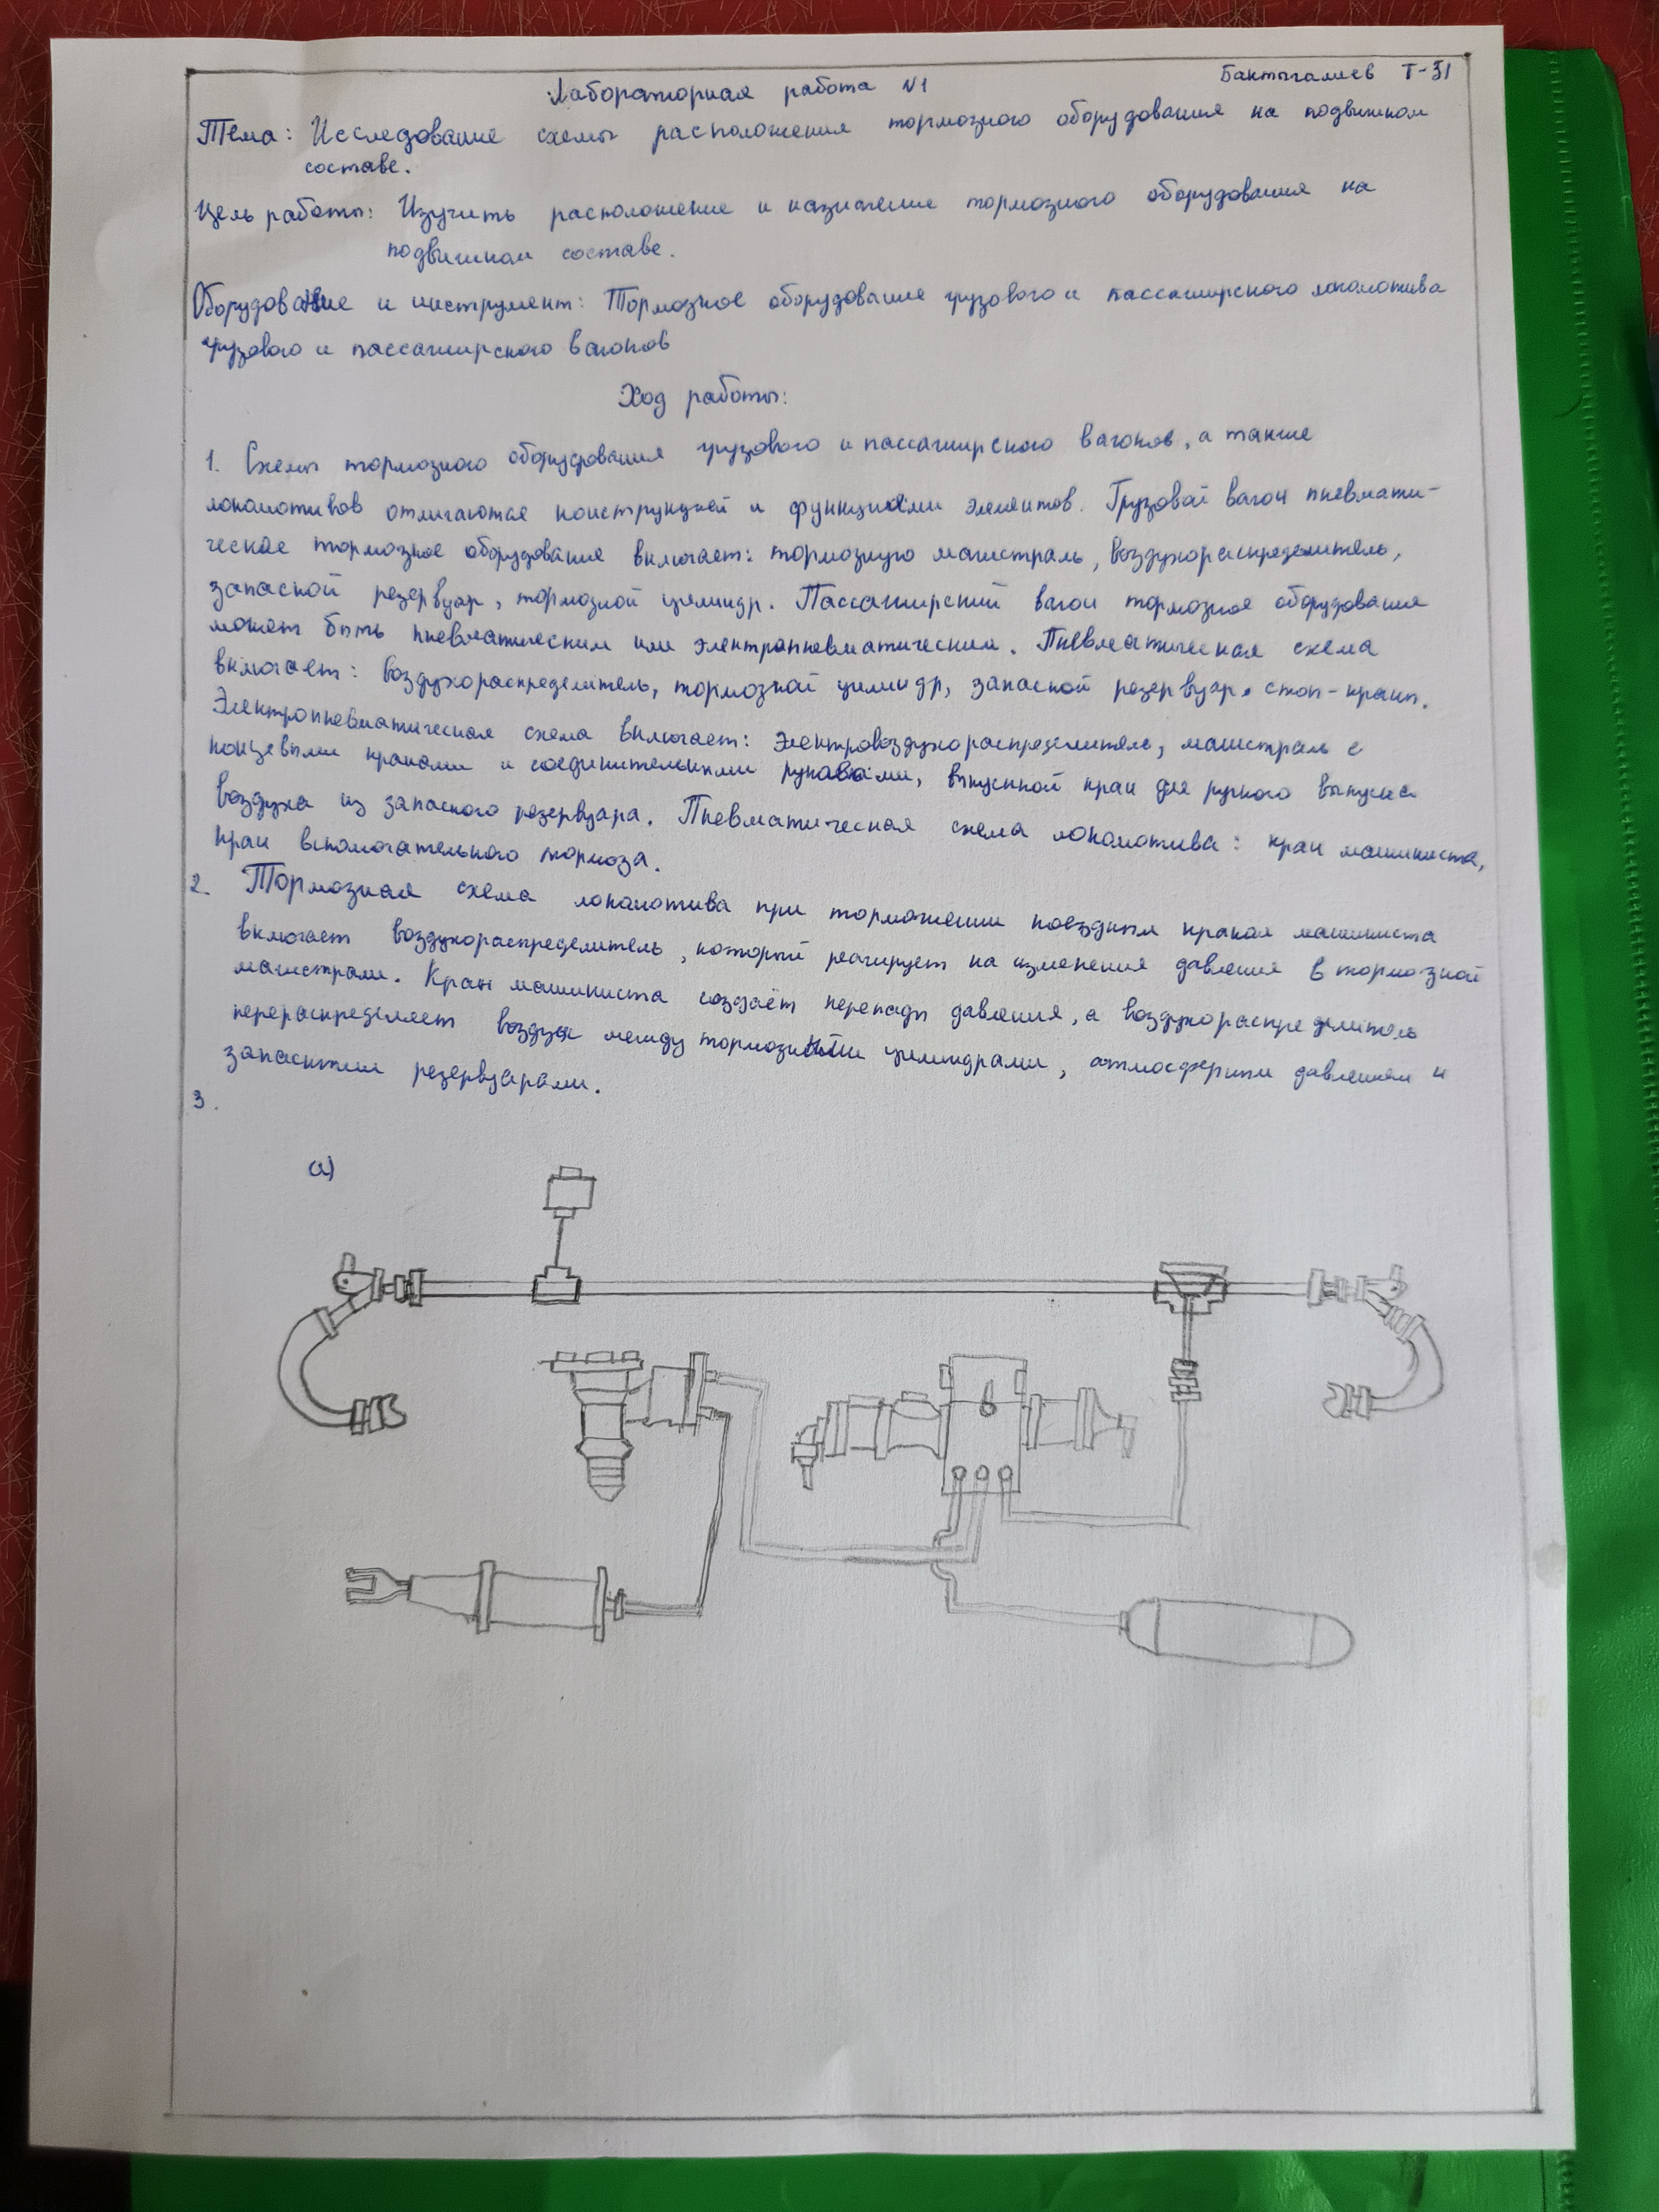 Лабораторная работа №1
Бактыгалиев Т-31
Тема: Исследование схемы расположения тормозного оборудования на подвижном
составе.
Цель работы: Изучить расположение и назначение тормозного оборудования на
подвижном составе.
Оборудование и инструмент: Тормозное оборудование грузового и пассажирского локомотива
грузового и пассажирского вагонов
Ход работы:
1. Схемы тормозного оборудования грузового и пассажирского вагонов, а также
локомотивов отличаются конструкцией и функциями элементов. Грузовой вагон пневмати-
ческое тормозное оборудование включает: тормозную магистраль, воздухораспределитель,
запасной резервуар, тормозной цилиндр. Пассажирский вагон тормозное оборудование
может быть пневматическим или электропневматическим. Пневматическая схема
включает: воздухораспределитель, тормозной цилиндр, запасной резервуар, стоп-кран.
Электропневматическая схема включает: электровоздухораспределитель, магистраль с
концевыми кранами и соединительными рукавами, выпускной кран для ручного выпуска
воздуха из запасного резервуара. Пневматическая схема локомотива: кран машиниста,
кран вспомогательного тормоза.
2. Тормозная схема локомотива при торможении поездным краном машиниста
включает воздухораспределитель, который реагирует на изменения давления в тормозной
магистрали. Кран машиниста создаёт перепады давления, а воздухораспределитель
перераспределяет воздух между тормозными цилиндрами, атмосферным давлением и
запасными резервуарами.
3.
а)